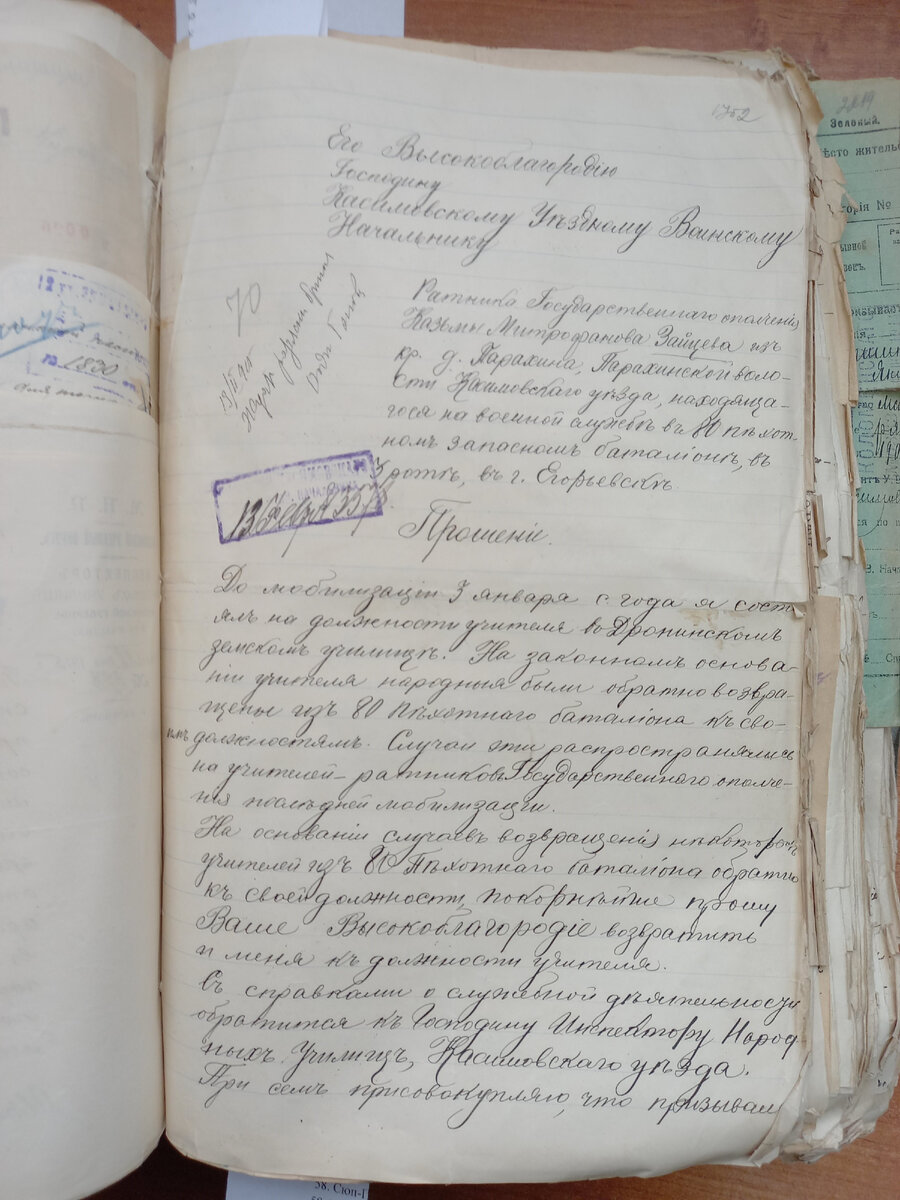 Его Высокоблагородію
Господину
Касимовскому Уѣздному Воинскому
Начальнику
Ратника Государственнаго ополченія
Казьмы Митрофанова Зайцева изъ
кр. д. Парахина, Парахинской воло-
сти Касимовскаго уѣзда, находяща-
гося на военной службѣ въ 80 пѣхот-
номъ запасномъ баталіонѣ, въ
3 ротѣ, въ г. Егорьевскѣ.
70
Прошеніе.
До мобилизаціи 3 января с. года я состо
ялъ на должности учителя въ Дропинскомъ
земскомъ училищѣ. На законномъ основа-
ніи учителя народныя были обратно возвра-
щены изъ 80 пѣхотнаго баталіона къ сво-
имъ должностямъ. Случаи эти распространялись
на учителей-ратниковъ Государственнаго ополче-
нія послѣдней мобилизаціи.
На основаніи случаевъ возвращенія нѣкоторыхъ
учителей изъ 80 Пѣхотнаго баталіона обратно
къ своей должности, покорнѣйше прошу
Ваше Высокоблагородіе возвратить
и меня къ должности учителя.
Съ справками о служебной дѣятельности
обратится къ Господину Инспектору Народ-
ныхъ Училищъ, Касимовскаго уѣзда.
При семъ присовокупляю, что призывал
Зеленый.
1830
58. Сюп-1